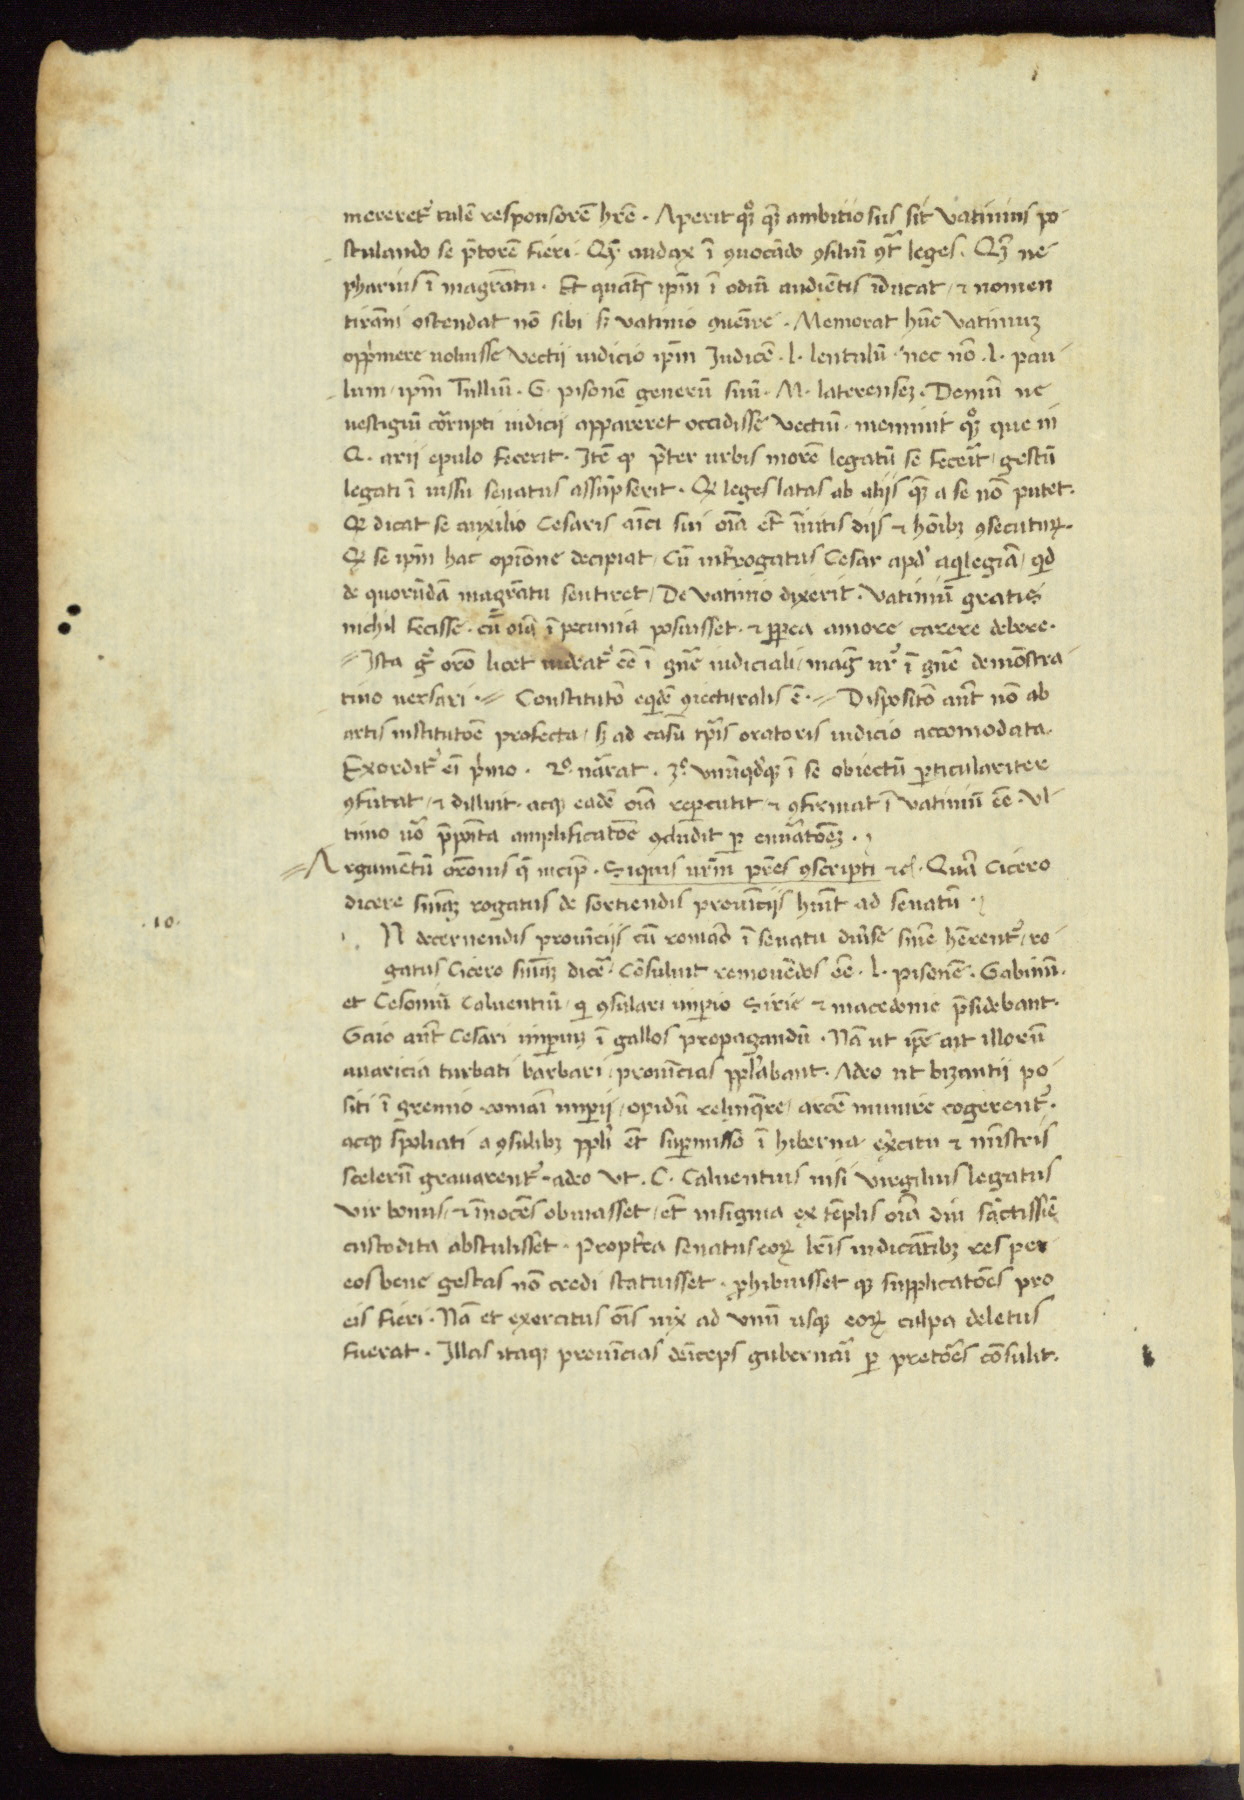 mereret᷑ talē responsorē hr̄e · Aperit qͦꝫ qꝫ ambitiosus sit Vatinius po-
stulando se p̄torē fieri · Qꝫ audax ī ꝯuocādo ꝯsiliū ꝯt̄ leges · Qꝫ ne
pharius ī magr̄atu · Et quātꝫ ip̄m ī odiū audiētis īducat / & nomen
tirāni ostendat nō sibi sꝫ vatinio ꝯuenīre · Memorat hūc Vatiniuꝫ
opp̄mere uoluisse Vectii iudicio ip̄m Judicē · l · lentulū · nec nō · l · pau-
lum / ip̄m Tulliū · G · pisonē generū suū · M · laterenseꝫ · Demū ne
uestigiū cōrrupti iudicii appareret occidisse vectiū · meminit qͦꝫ que in
Q · arii epulo fecerit · Itē ꝙ p̄ter urbis morē legatū se fecerīt / gestū
legati ī iussu senatus assūpserit · Qꝫ leges latas ab aliis qꝫ a se nō putet ·
Qꝫ dicat se auxilio Cesaris amīci sui oīa et̄ īuitis diis & hōibꝫ ꝯsecuturꝫ ·
Qꝫ se ip̄m hac opiōne decipiat / Cū int̄rogatus Cesar apd̓ aqilegiā / qd
de quorūdā magr̄atu sentiret / De vatinio dixerit · Vatiniū gratis
nichil fecisse · cū oīa ī pecunia posuisset · & ꝓpea amore carere debere ·
Ista g̊ orō licet uideat᷑ eē ī gn̄e iudiciali / mag̊ ur̄ ī gn̄e demōstra-
tiuo uersari · Constitutō eqidē ꝯiecturalis ē · Dispositō aūt nō ab
artis institutōe profecta / sꝫ ad casū tp̄is oratoris iudicio accomodata ·
Exordit᷑ eī p̄mo · 2º · nārrat · 3º · vnūqdqꝫ ī se obiectū ꝑticulariter
ꝯfutat / & diluit · atqꝫ eadē oīa reꝑcutit & ꝯfirmat ī vatiniū eē · Vl-
timo uͦo p̄pōita amplificatōe ꝯcludit ꝑ enūatōeꝫ ·
Argumētū orōnis q̄ incip̄ · Siquis ur̄m pr̄es ꝯscripti &c · Quā Cicero
dicere sn̄iaꝫ rogatus de sortiendis prouīciis hūit ad senatū ·
· 10 ·
N decernendis prouīciis cū romāo ī senatu diūse sn̄ie hērent᷑ / ro-
gatus Cicero sn̄iaꝫ dicē · Cōsuluit remouēdos eē · l · pisonē · Gabiniū ·
et Cesoniū Caluentiū / qi ꝯsulari imꝑio Sirie & macedonie p̄sidebant ·
Gaio aūt Cesari imꝑiuꝫ ī gallos propagandū · Nā ut ip̄e ait illorū
auaricia turbati barbari / prouīcias ppl̄abant · Adeo ut bizantii po-
siti ī gremio romāi imꝑii / opidū relinqͤre / arcē munire cogerent᷑ ·
atqꝫ spoliati a ꝯsulibꝫ ppl̄i et̄ suꝑmisso ī hiberna exͤcitu & mīstris
scelerū grauarent᷑ · adeo vt · C · Caluentius nisi Virgilius legatus
vir bonus / & īnocēs obuiasset / et̄ insignia ex tēplis oīa diu sāctissīe
custodita abstulisset · Propt̄ea senatus eorꝫ lr̄is indicātibꝫ res per
eos bene gestas nō credi statuisset · ꝓhibuisset qꝫ supplicatōes pro
eis fieri · Nā et exercitus oīs uix ad vnū usqꝫ eorꝫ culpa deletus
fuerat · Illas itaqꝫ prouīcias deīceps gubernāi ꝑ pretōes cōsulit ·